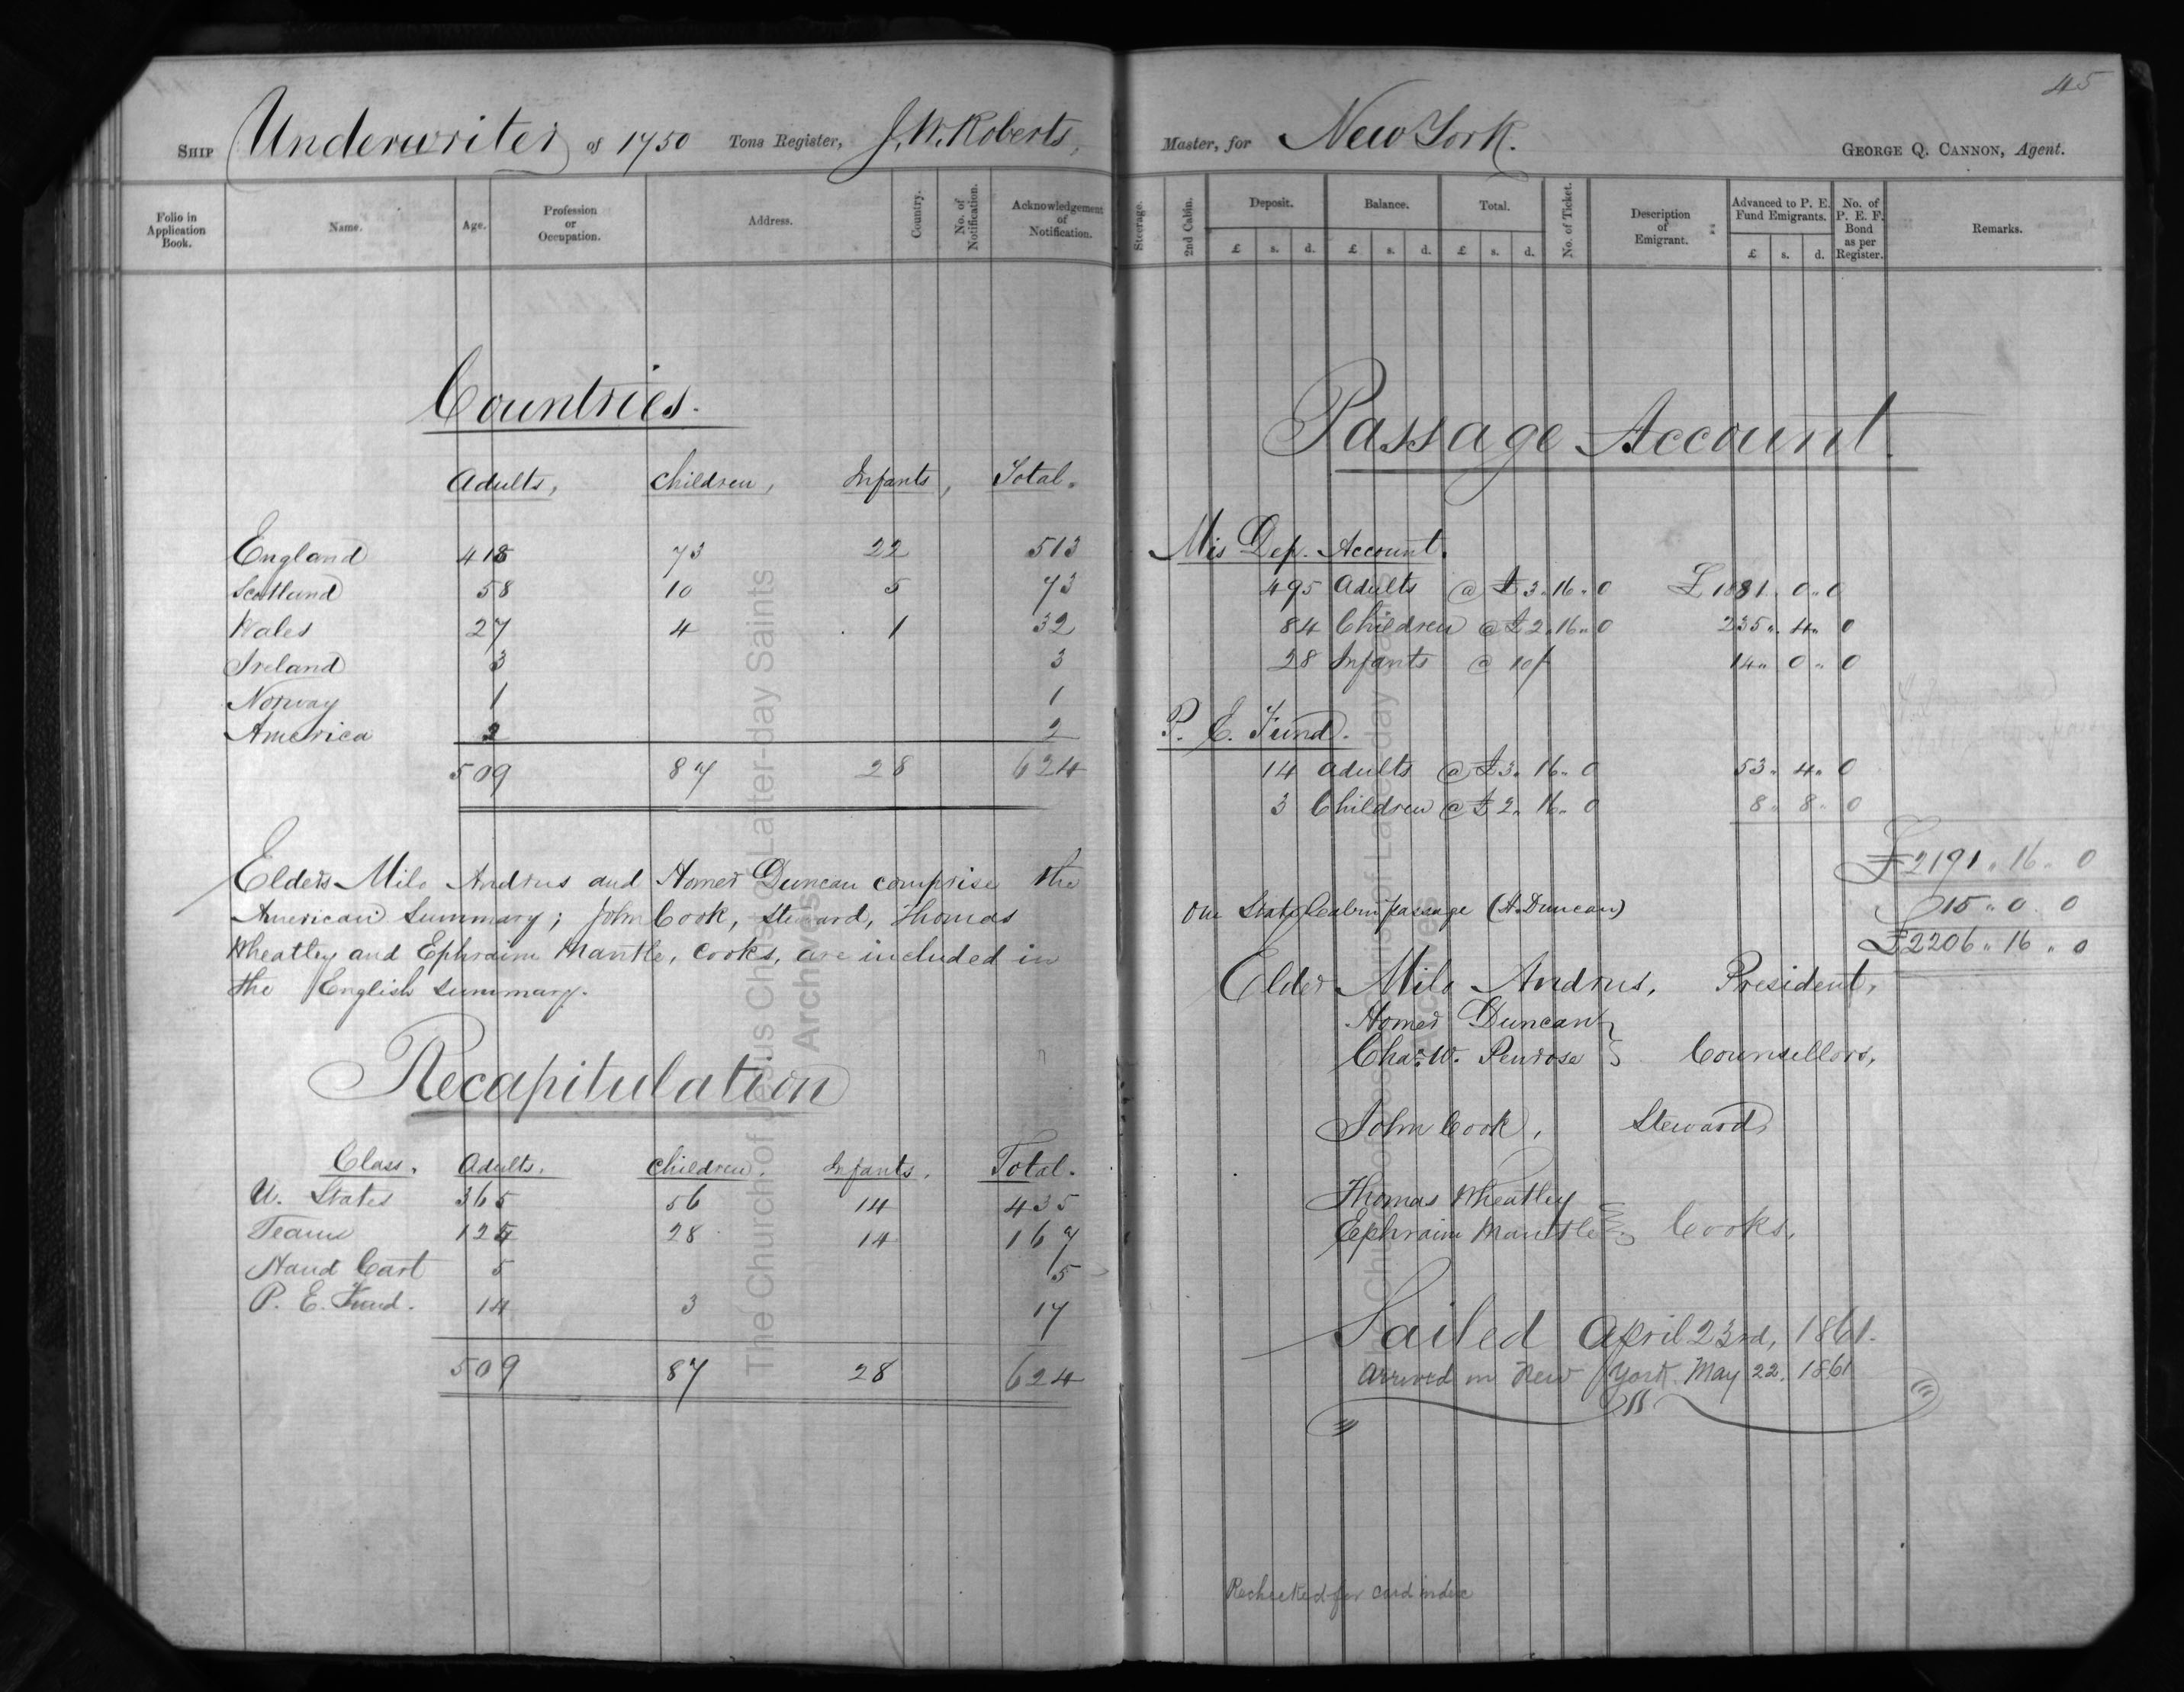 45
SHIP Underwriter of 1750 Tons Register, J. W. Roberts,
Folio in Application Book.
Name.
Age.
Profession or Occupation.
Address.
Country.
No. of Notification.
Acknowledgement of Notification.
Countries.
Adults, Children, Infants, Total.
England 418 73 22 513
Scotland 58 10 5 73
Wales 27 4 1 32
Ireland 3 3
Norway 1 1
America 2 2
509 87 28 624
Elders Milo Andrus and Homer Duncan comprise the
American Summary; John Cook, Steward, Thomas
Wheatley and Ephraim Mantle, Cooks, are included in
the English Summary.
Recapitulation
Class. Adults. Children. Infants. Total.
U. States 365 56 14 435
Teams 125 28 14 167
Hand Cart 5 5
P. E. Fund. 14 3 17
509 87 28 624
The Church of Jesus Christ of Latter-day Saints
Archives
Master, for New York.
GEORGE Q. CANNON, Agent.
Steerage.
2nd Cabin.
Deposit. £ s. d.
Balance. £ s. d.
Total. £ s. d.
No. of Ticket.
Description of Emigrant.
Advanced to P. E. Fund Emigrants. £ s. d.
No. of P. E. F. Bond as per Register.
Remarks.
Passage Account.
Mis Dep. Account.
495 Adults @ £3.16.0 £1881.0.0
84 Children @ £2.16.0 235.4.0
28 Infants @ 10/ 14.0.0
P. E. Fund.
14 Adults @ £3.16.0 53.4.0
3 Children @ £2.16.0 8.8.0
£2191.16.0
One State Cabin passage (H. Duncan) 15.0.0
£2206.16.0
Elder Milo Andrus, President,
Homer Duncan }
Chas. W. Penrose } Counsellors,
John Cook, Steward,
Thomas Wheatley }
Ephraim Mantle } Cooks,
Sailed April 23rd, 1861.
Arrived in New York May 22, 1861
Rechecked for card index
The Church of Jesus Christ of Latter-day Saints
Archives